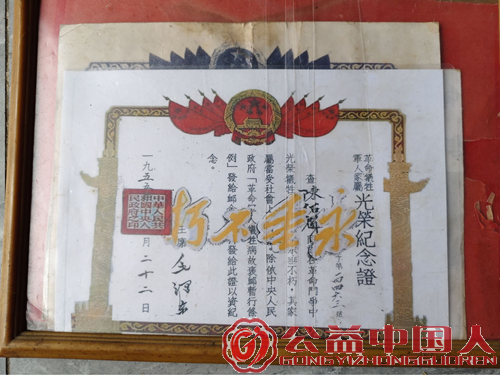 革命犧牲
軍人家屬
光榮紀念證
字第
查陳 同志在革命鬥爭中
光榮犧牲 永垂不朽。其家
屬當受社會上 除依中央人民
政府「革命 人犧牲病故褒卹暫行條
例」發給卹金 發給此證以資紀
念。
主席 毛澤東
一九五五 月二十二日
中華人民共
和國中央人
民政府之印
永垂不朽
公益中国人